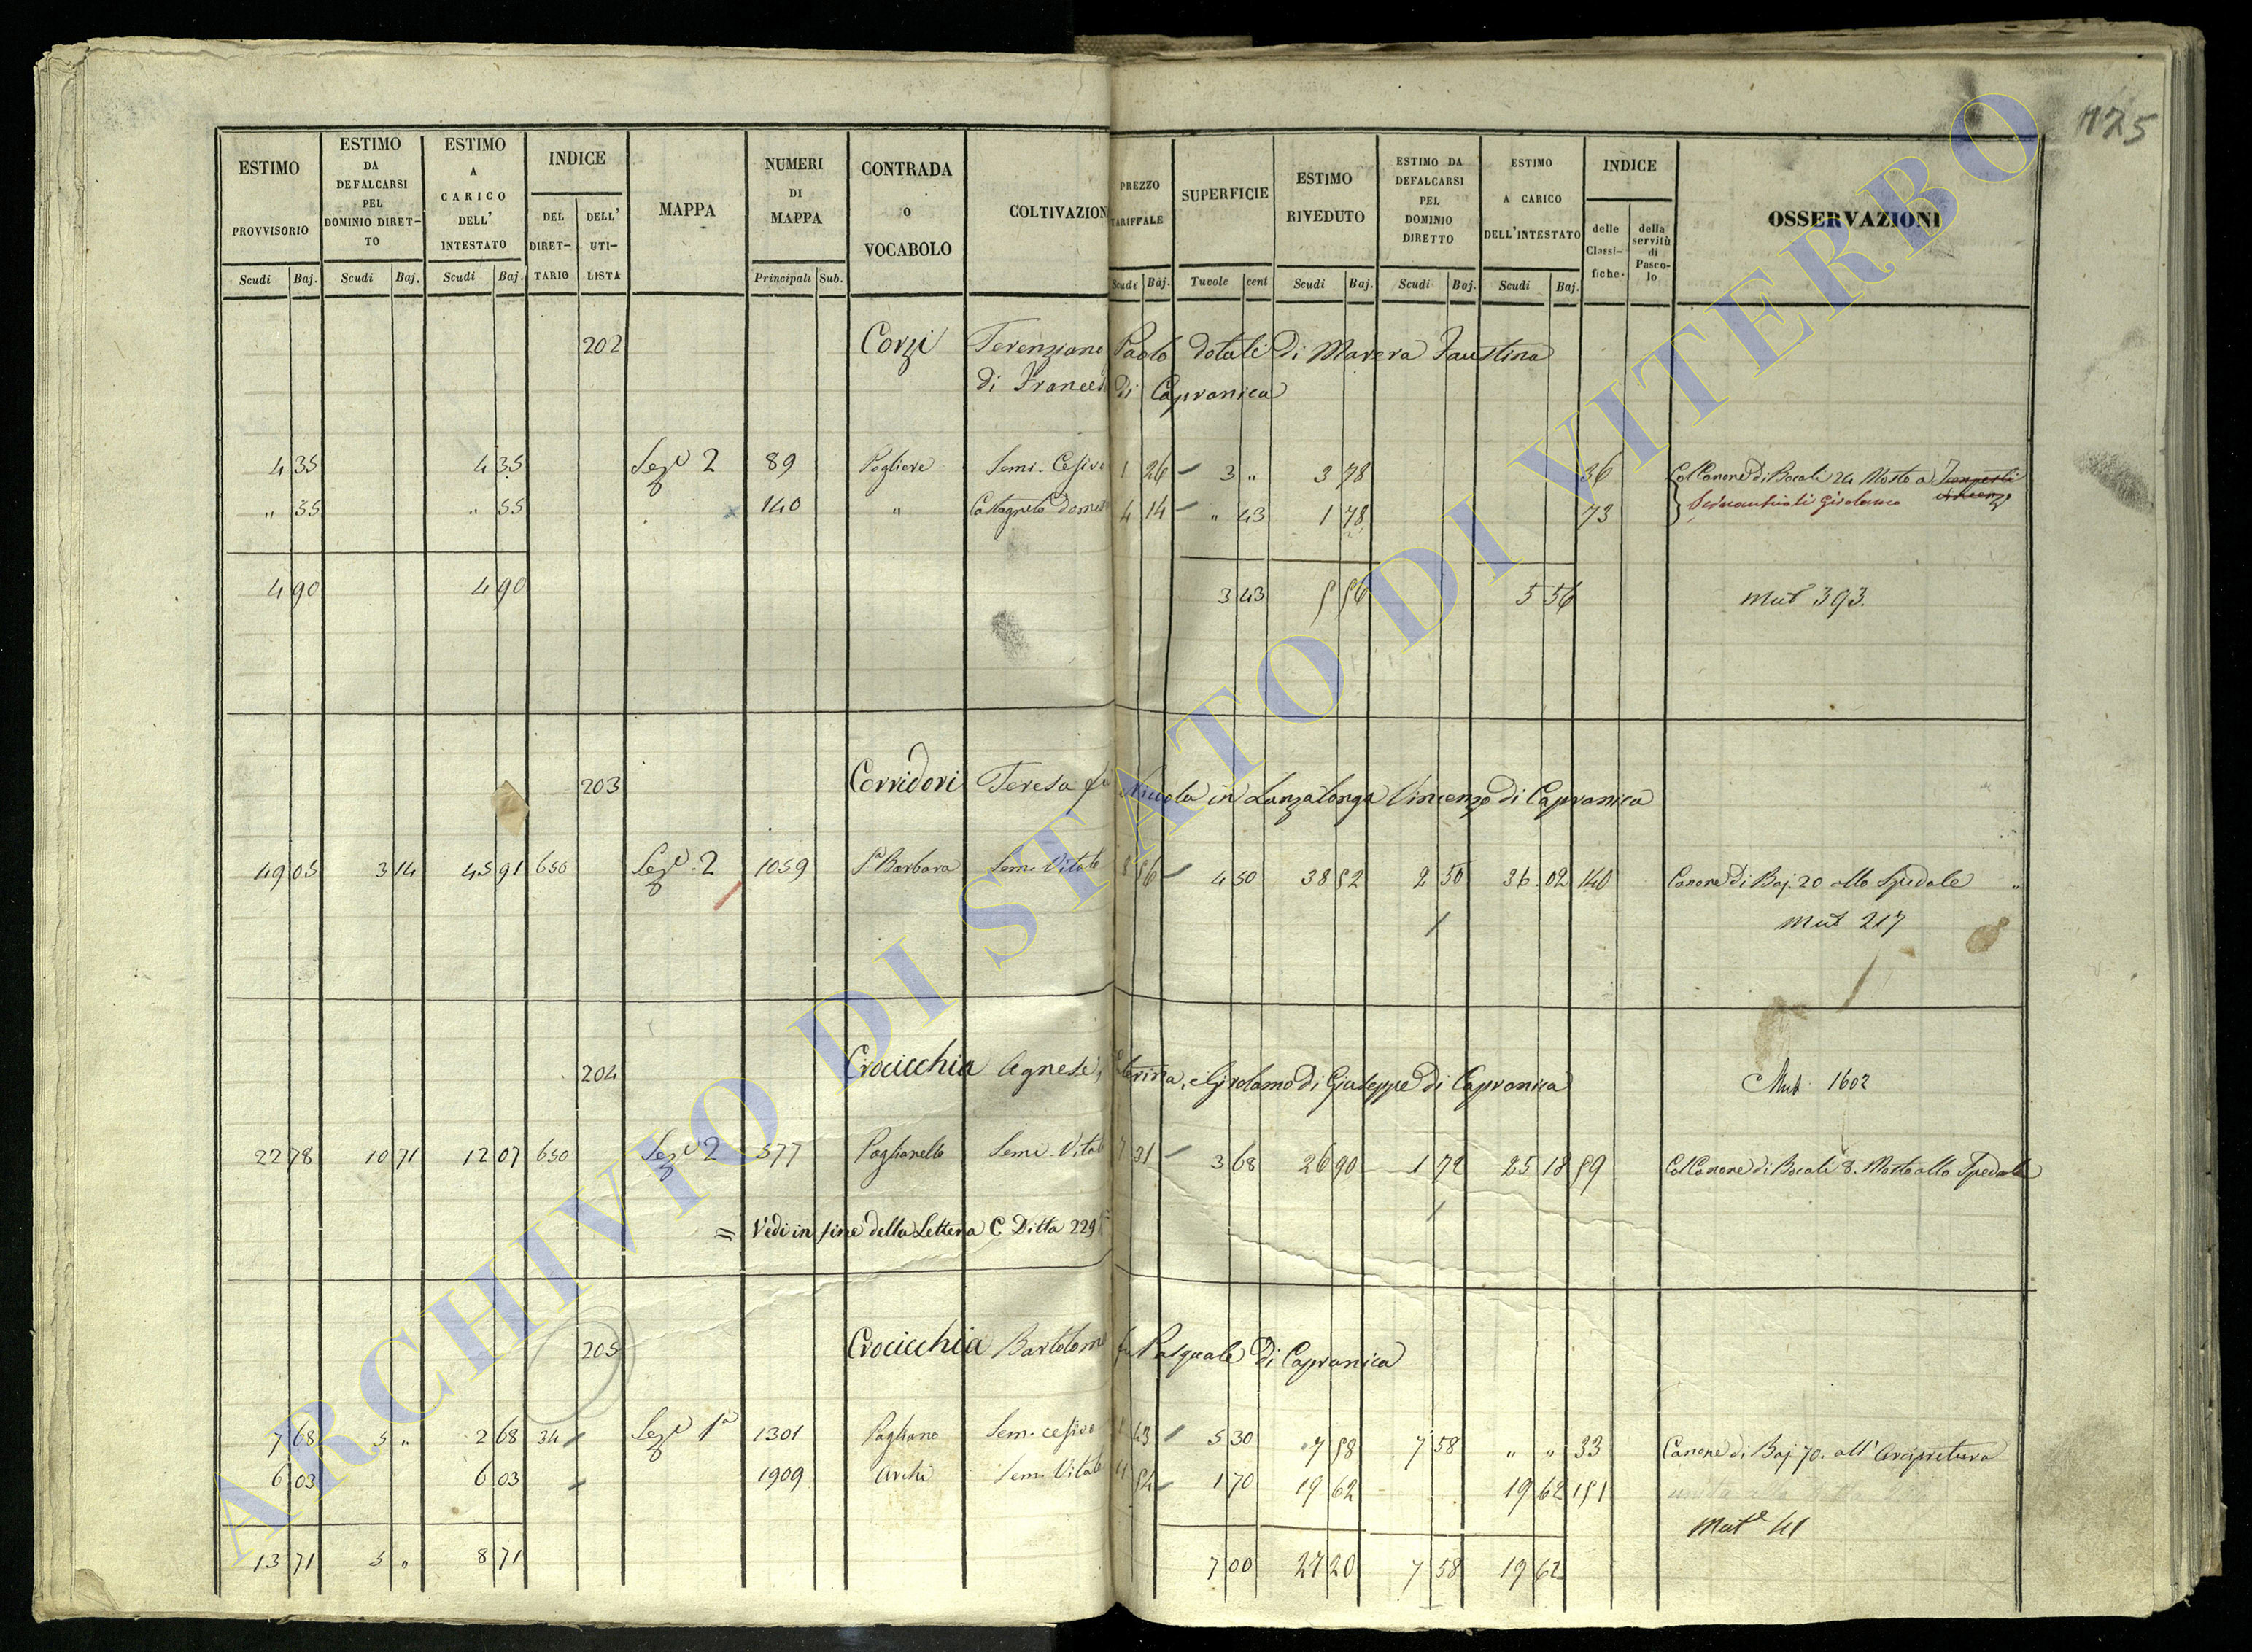 1125
ESTIMO PROVVISORIO Scudi Baj.
ESTIMO DA DEFALCARSI PEL DOMINIO DIRETTO Scudi Baj.
ESTIMO A CARICO DELL' INTESTATO Scudi Baj.
INDICE DEL DIRETTARIO DELL' UTILISTA
MAPPA
NUMERI DI MAPPA Principali Sub.
CONTRADA O VOCABOLO
COLTIVAZION
PREZZO TARIFFALE Scudi Baj.
SUPERFICIE Tavole cent
ESTIMO RIVEDUTO Scudi Baj.
ESTIMO DA DEFALCARSI PEL DOMINIO DIRETTO Scudi Baj.
ESTIMO A CARICO DELL'INTESTATO Scudi Baj.
INDICE delle Classifiche. della servitù di Pascolo
OSSERVAZIONI
202 Corzi Terenziano Paolo dotali di Marera Faustina
di Franceso di Capranica
4 35 4 35 Seze 2 89 Pogliere Semi. Cesivo 1 26 3 " 3 78 36 Col Canone di Bocali 24 Mosto a
" 55 " 55 140 " Castagneto domes 4 14 " 43 1 78 73 Girolamo
4 90 4 90 3 43 5 56 5 56 Mut 393.
203 Corridori Teresa fu Niccola in Lanzalonga Vincenzo di Capranica
49 05 3 14 45 91 650 Seze. 2 1059 Sa Barbara Sem. Vitato 8 56 4 50 38 52 2 50 36 02 140 Canone di Baj. 20 allo Spedale "
Mut 217
204 Crocicchia Agnese, Caterina, e Girolamo di Giuseppe di Capranica Mut 1602
22 78 10 71 12 07 650 Seze 2 577 Poglianello Semi. Vitato 7 31 3 68 26 90 1 72 25 18 59 Col Canone di Bocali 8. Mosto allo Spedale
= Vedi in fine della Lettera C. Ditta 229
205 Crocicchia Bartolomeo fu Pasquale di Capranica
7 68 5 " 2 68 34 Seze 1a 1301 Pogliano Sem. cesivo 1 43 5 30 7 58 7 58 " " 33 Canone di Baj. 70. all' Arcipretura
6 03 6 03 1909 Archi Sem. Vitato 11 54 1 70 19 62 19 62 151
Mute 41
13 71 5 " 8 71 7 00 27 20 7 58 19 62
ARCHIVIO DI STATO DI VITERBO